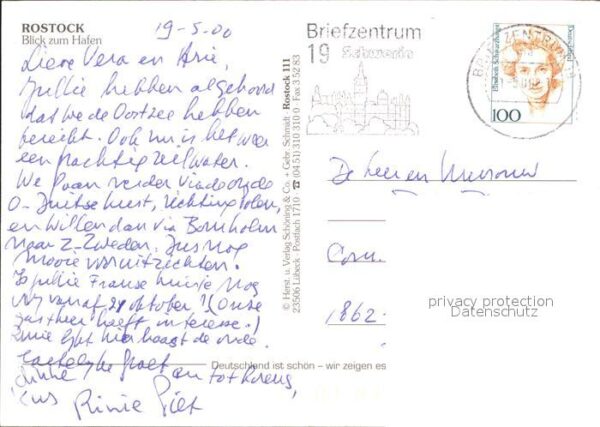 ROSTOCK
Blick zum Hafen
19-5-00
Lieve Vera en Arie,
Jullie hebben al gehoord
dat we de Oostzee hebben
bereikt. Ook nu is het weer
een prachtig zeilwater.
We gaan verder via de oude
O-Duitse kust, richting Polen,
en willen dan via Bornholm
naar Z-Zweden. Dus nog
mooie vooruitzichten.
Is jullie Franse huisje nog
vrij vanaf 21 oktober? (Onze
gastheer heeft interesse!)
hier
Hartelijke groet en tot horens,
dikke
kus Rinie Piet
© Herst. u. Verlag Schöning & Co. + Gebr. Schmidt · Rostock 111
23506 Lübeck · Postfach 1710 · ☎ (0451) 310 310 0 · Fax 3 52 83
Deutschland ist schön – wir zeigen es
Briefzentrum
19 Schwerin
BRIEFZENTRUM
Elisabeth Schwarzhaupt
Deutschland
100
De Heer en Mevrouw
1862
privacy protection
Datenschutz